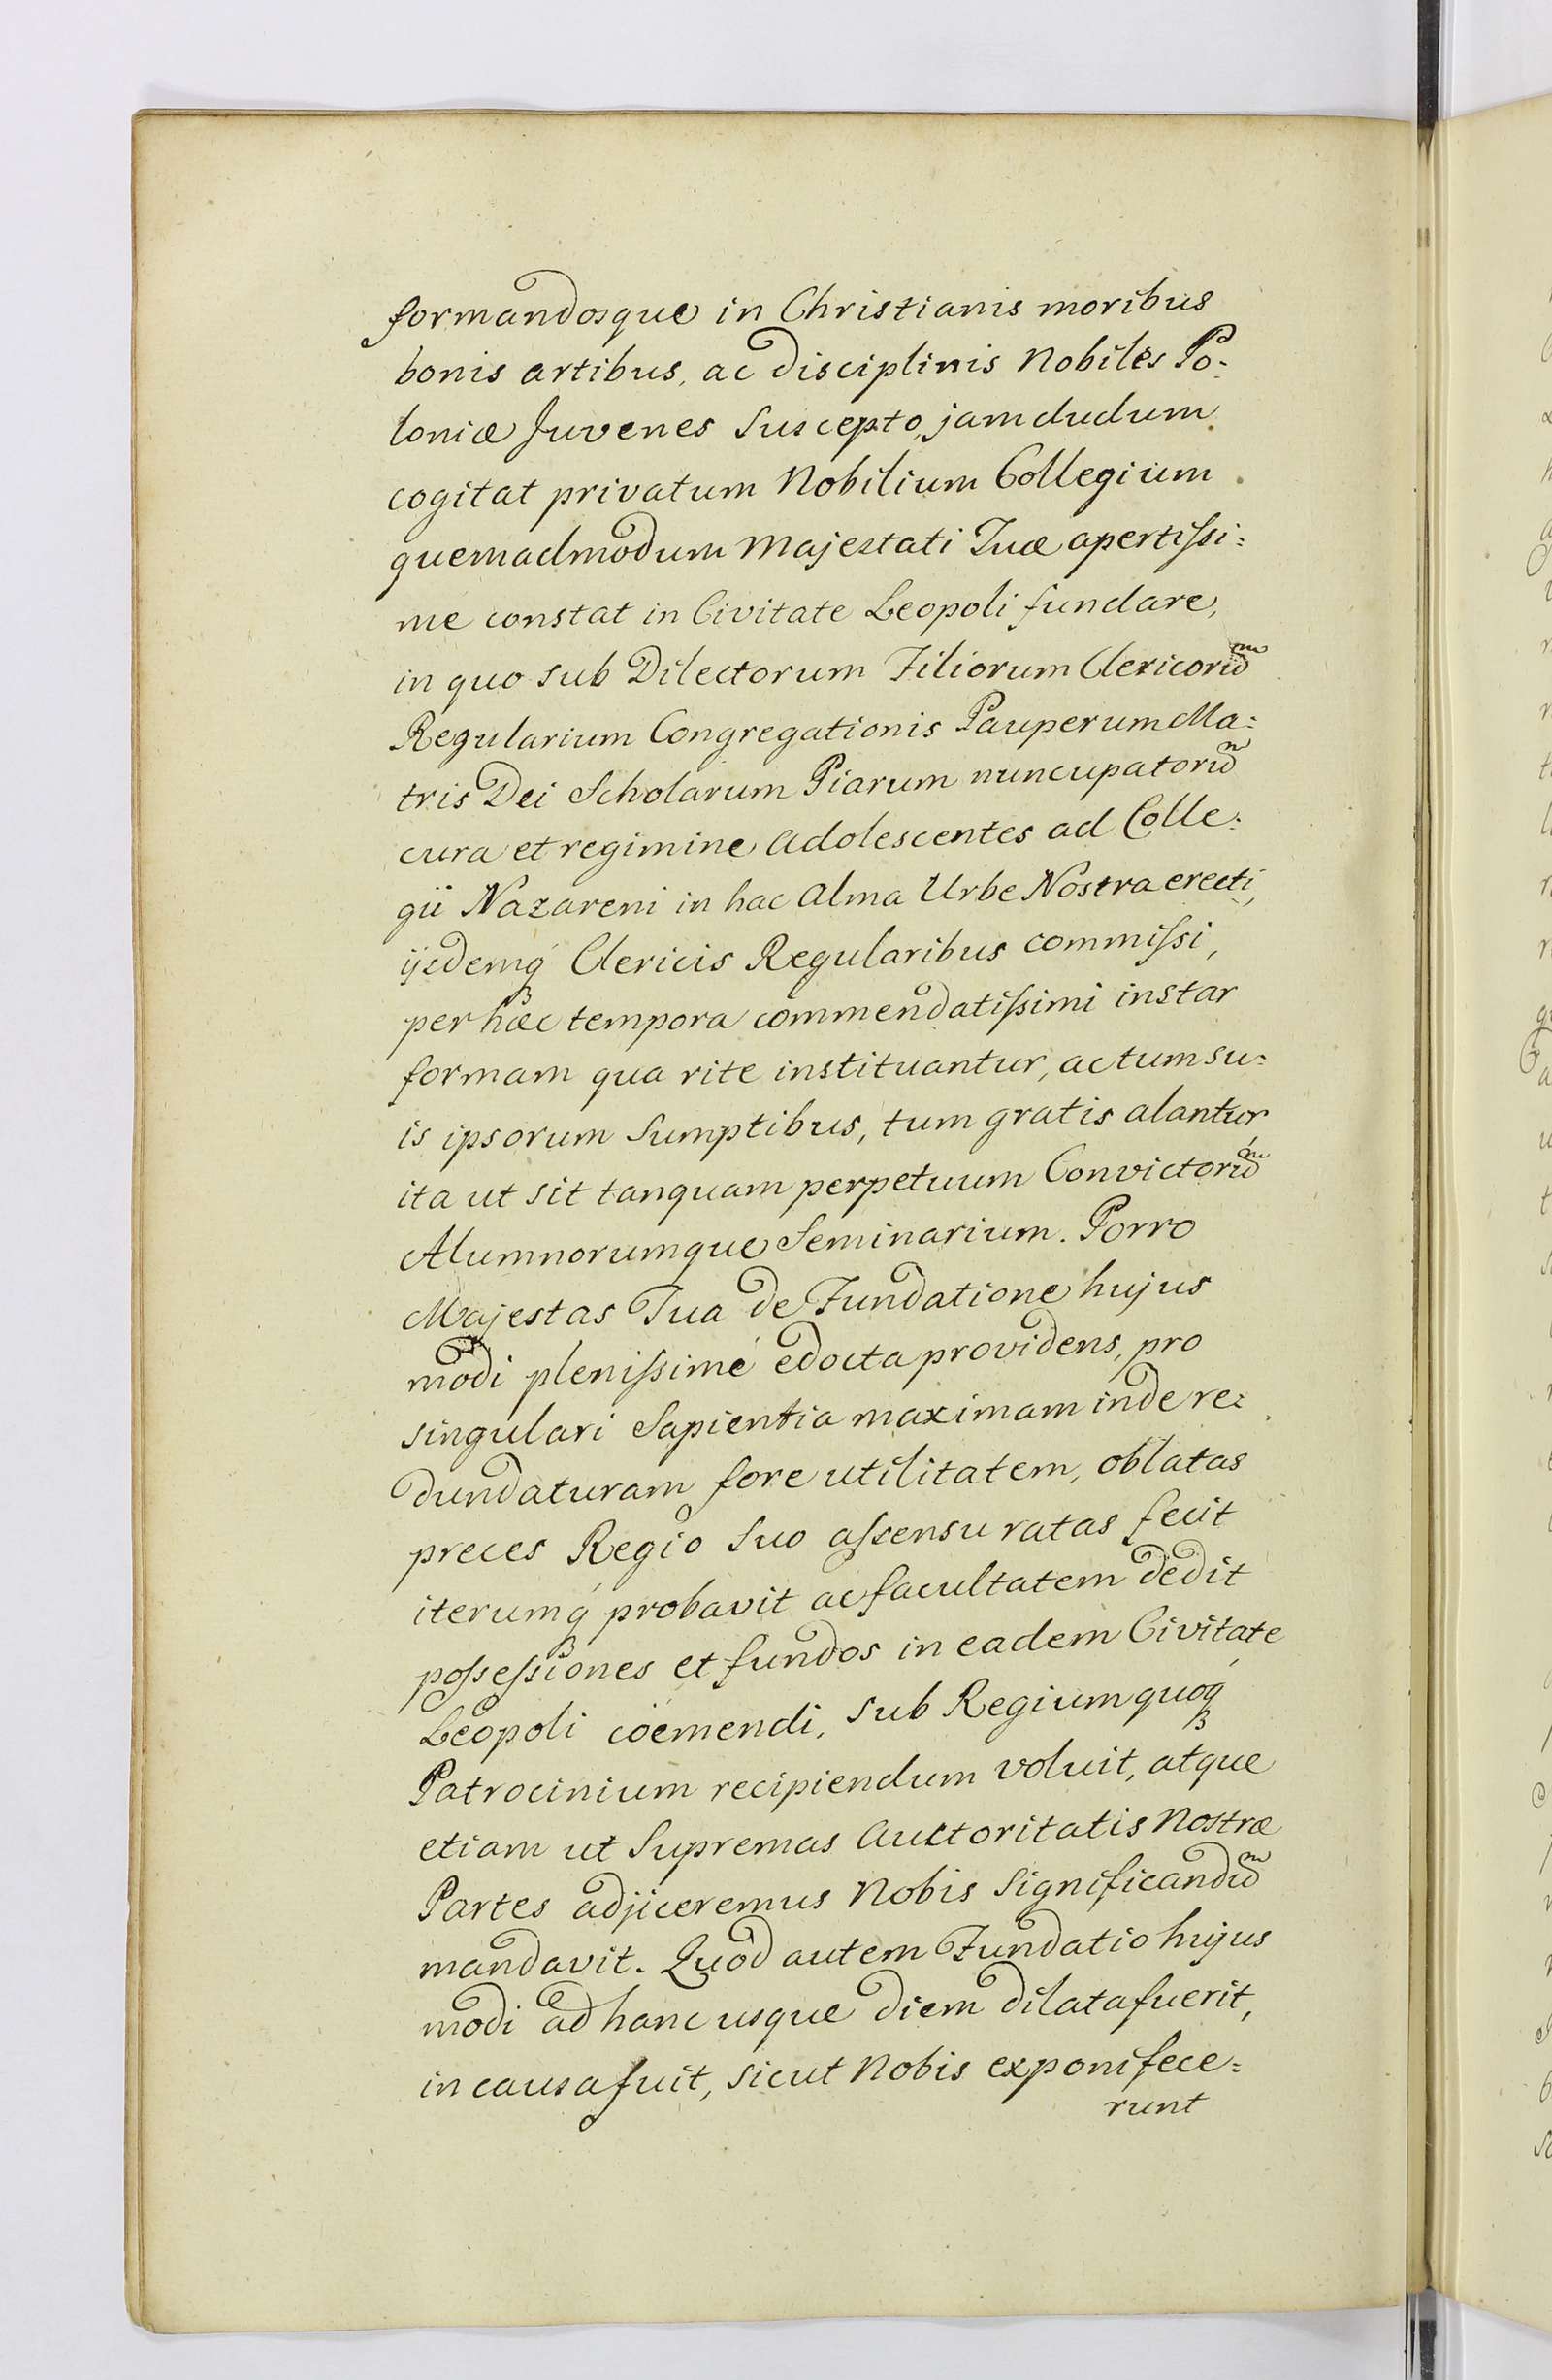 formandosque in Christianis moribus
bonis artibus, ac disciplinis Nobiles Po:
loniæ Juvenes suscepto jamdudum
cogitat privatum Nobilium Collegium
quemadmodum Majestati Tuæ apertissi:
me constat in Civitate Leopoli fundare,
in quo sub Dilectorum Filiorum Clericorum
Regularium Congregationis Pauperum Ma:
tris Dei Scholarum Piarum nuncupatorum
cura et regimine adolescentes ad Colle:
gii Nazareni in hac Alma Urbe Nostra erecti,
ijsdemq́ꝫ Clericis Regularibus commissi,
per hæc tempora commendatissimi instar
formam qua rite instituantur, ac tum su:
is ipsorum sumptibus, tum gratis alantur
ita ut sit tanquam perpetuum Convictorum
Alumnorumque Seminarium. Porro
Majestas Tua de Fundatione hujus
modi plenissimé edocta providens, pro
singulari Sapientia maximam inde re:
dundaturam fore utilitatem, oblatas
preces Regio suo assensu ratas fecit
iterumq́ꝫ probavit ac facultatem dedit
possessiones et fundos in eadem Civitate
Leopoli coëmendi, sub Regium quoq́ꝫ
Patrocinium recipiendum voluit, atque
etiam ut Supremas Auctoritatis Nostræ
Partes adjiceremus Nobis significandum
mandavit. Quod autem Fundatio hujus
modi ad hanc usque diem dilata fuerit,
in causa fuit, sicut Nobis exponi fece:
runt